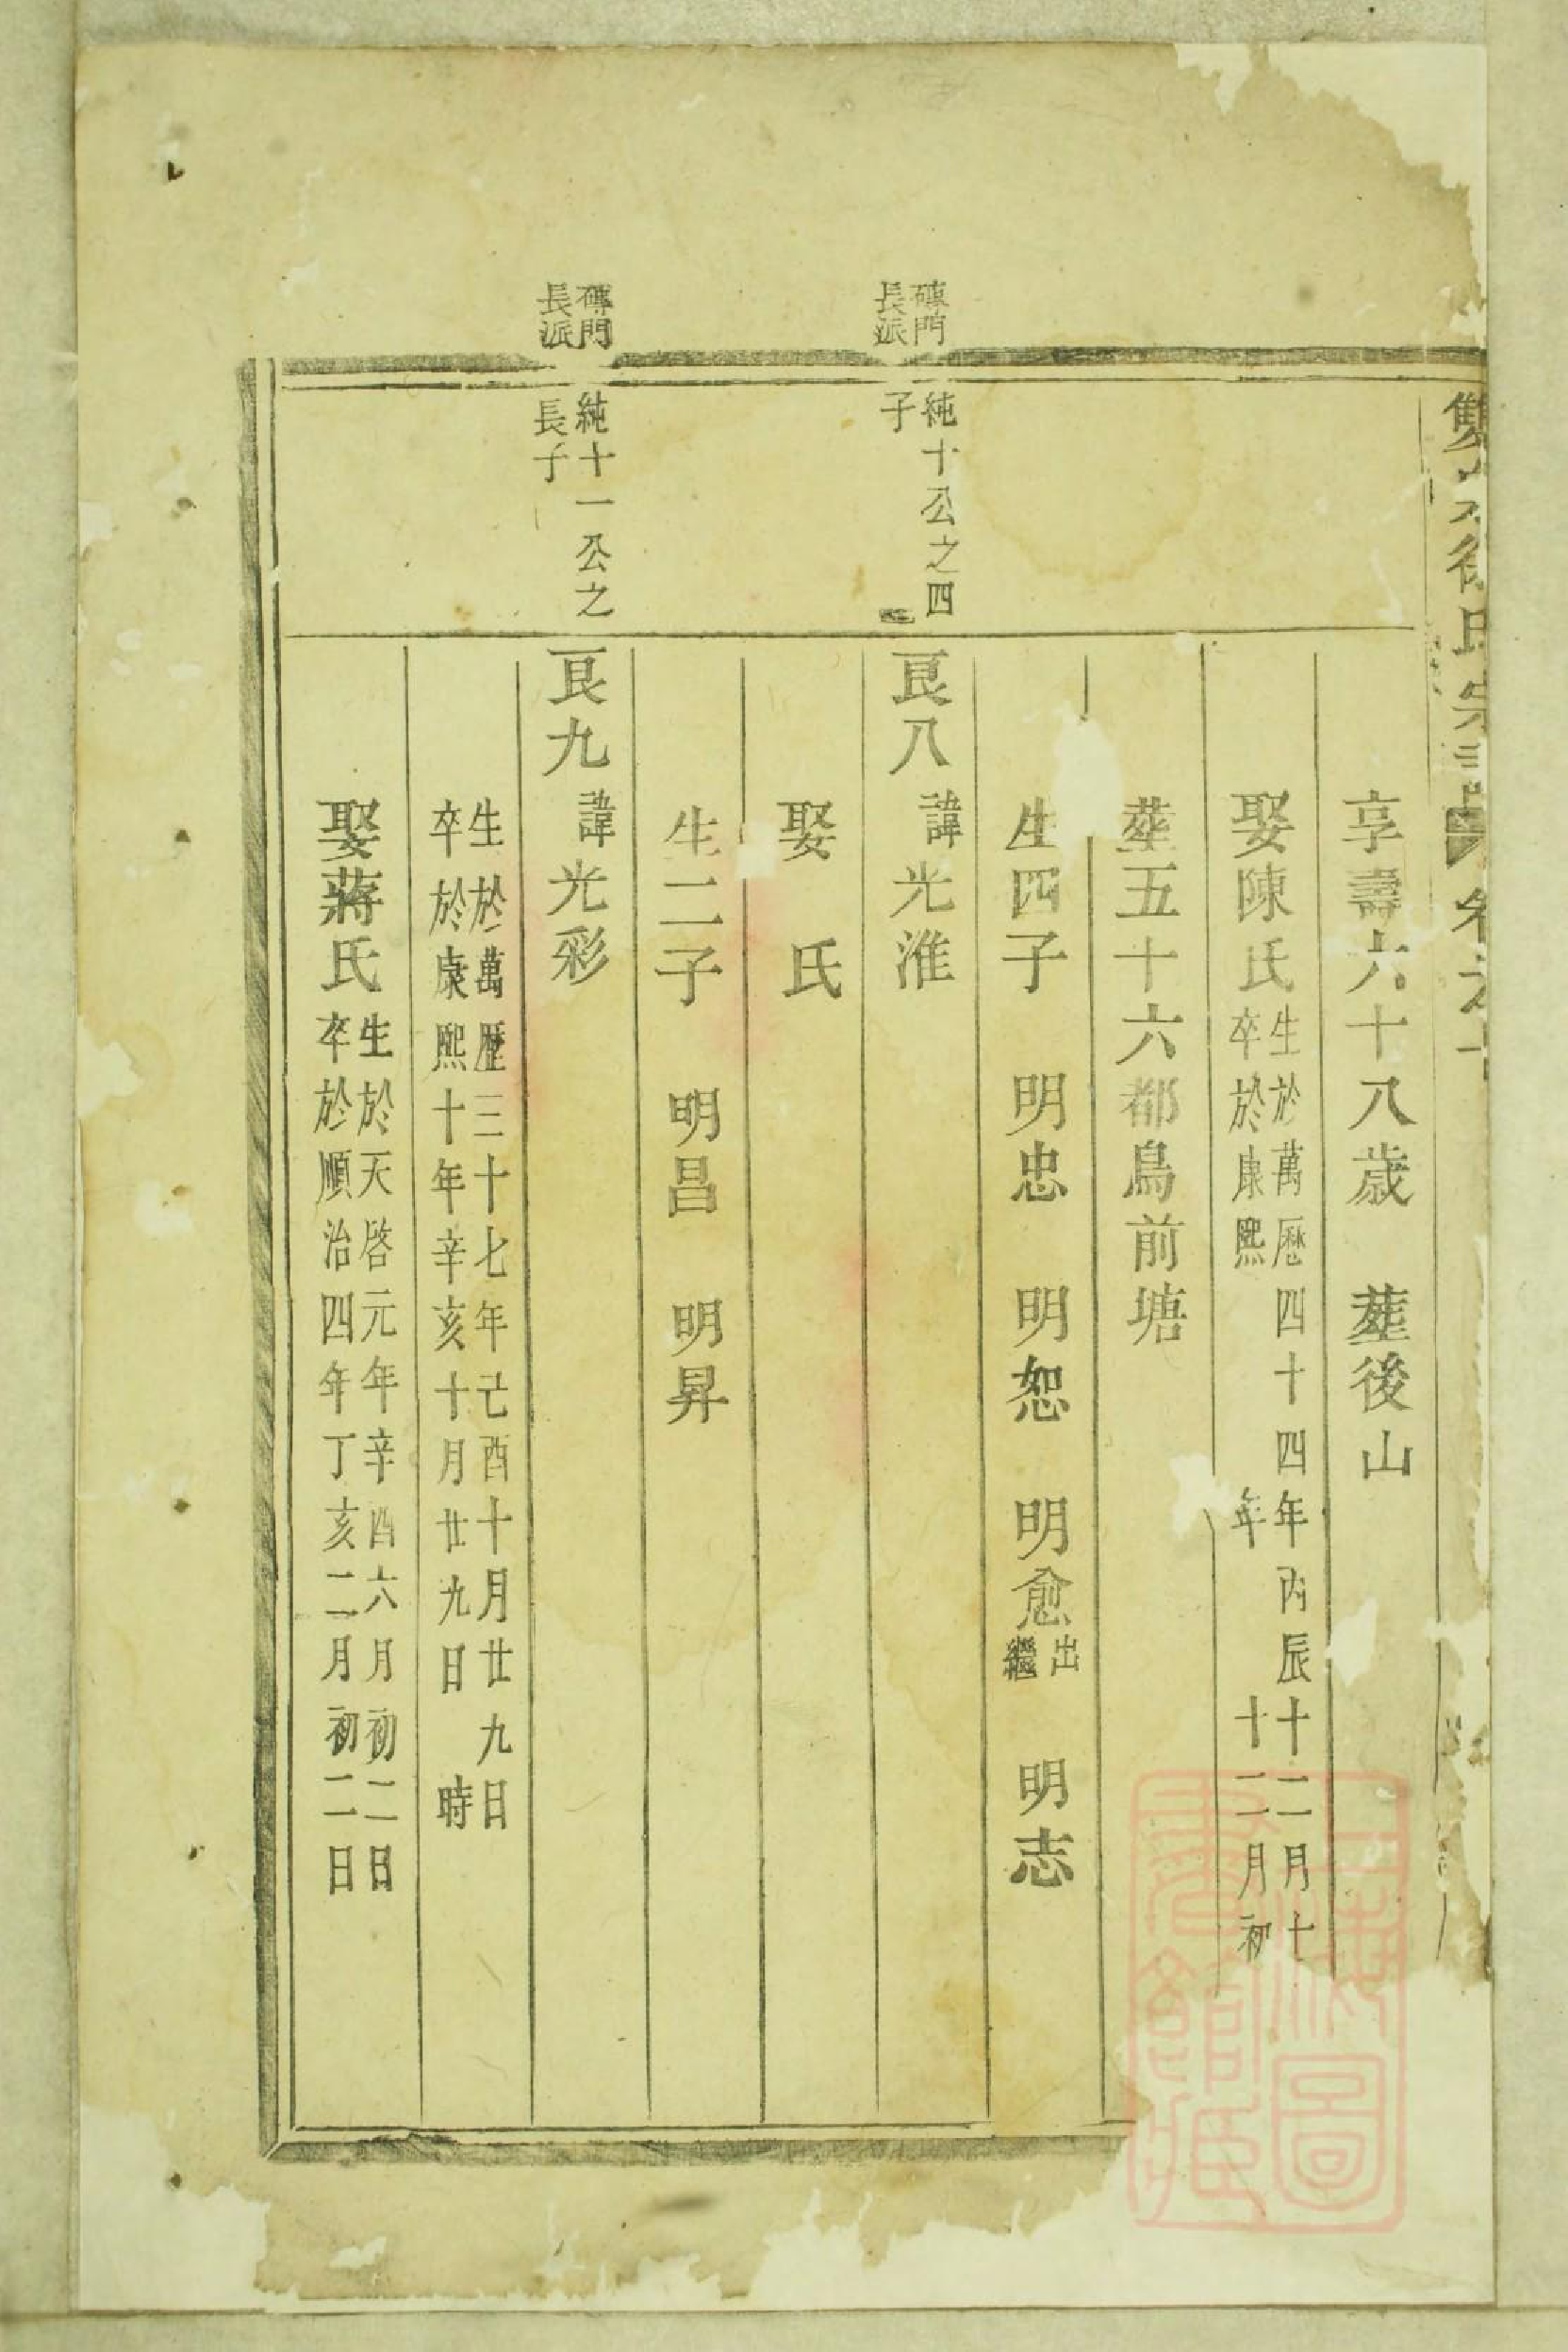 雙 徐氏宗 卷之十
享壽六十八歲 塟後山
娶陳氏 生於萬曆四十四年丙辰十二月十
卒於康熙 年 十二月初
塟五十六都烏前塘
生四子 明忠 明恕 明愈 出繼 明志
磚門長派
純十公之四子
良八 諱光淮
娶 氏
生二子 明昌 明昇
磚門長派
純十一公之長子
良九 諱光彩
生於萬歷三十七年己酉十月廿九日
卒於康熙十年辛亥十月廿九日 時
娶蔣氏 生於天啓元年辛酉六月初二日
卒於順治四年丁亥二月初二日
上海圖書館藏